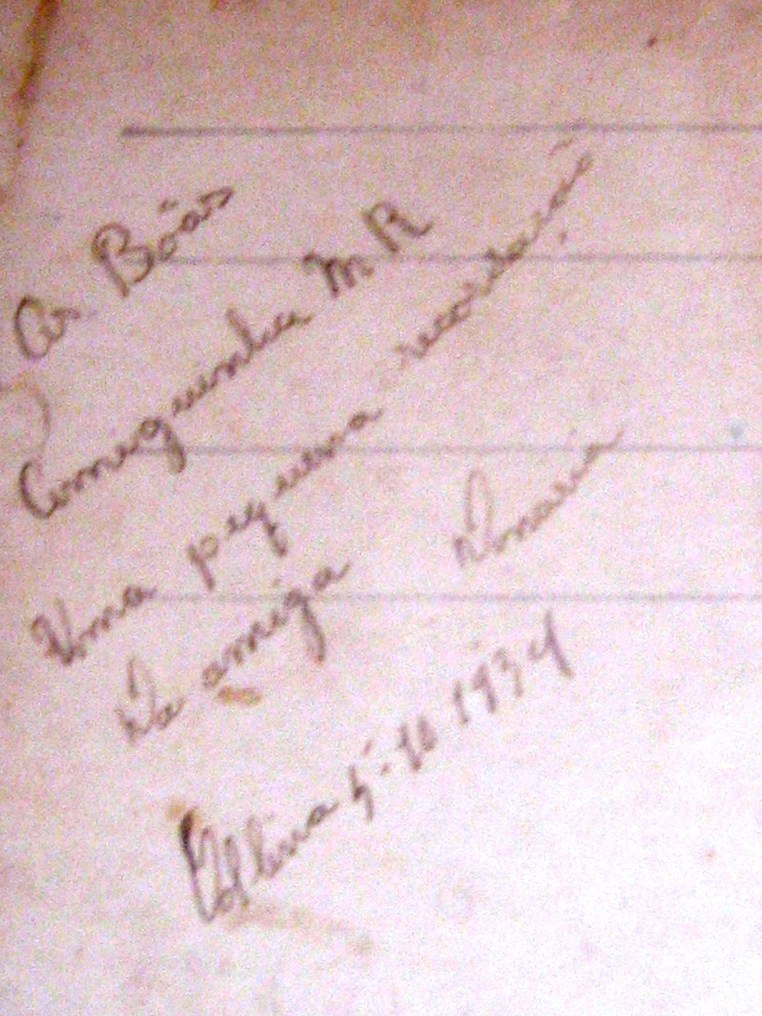 As Bôas
Amiguinha M R
Uma pequena recordação
Da amiga Donaria
Collina 5-10 1934